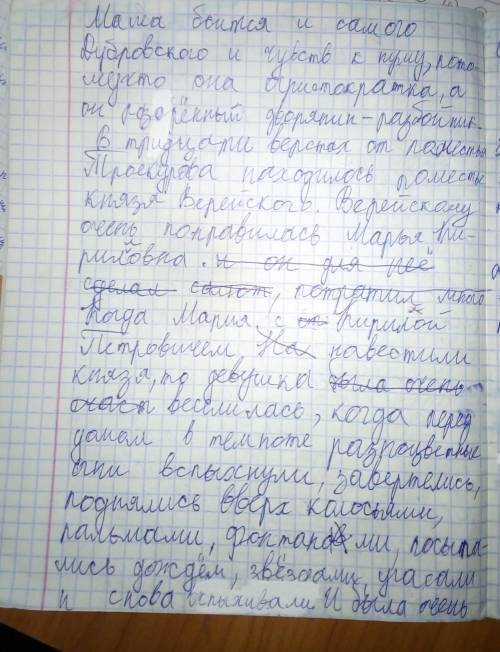 Маша боится и самого
Дубровского и чувств к нему, пото-
мучто она аристократка, а
он разорённый дворянин-разбойник.
В тридцати верстах от поместья
Троекурова находилось поместье
князя Верейского. Верейскому
очень понравилась Марья Ки-
риловна. и он для неё
сделал салют, потратил много
Когда Мария с он Кирилой
Петровичем На навестили
князя, то девушка была очень
счаст веселилась, когда перед
домом в темноте разноцветные
огни вспыхнули, завертелись,
поднялись вверх колосьями,
пальмами, фонтанами, посыпа-
лись дождём, звёздами, угасали
и снова вспыхивали. И была очень